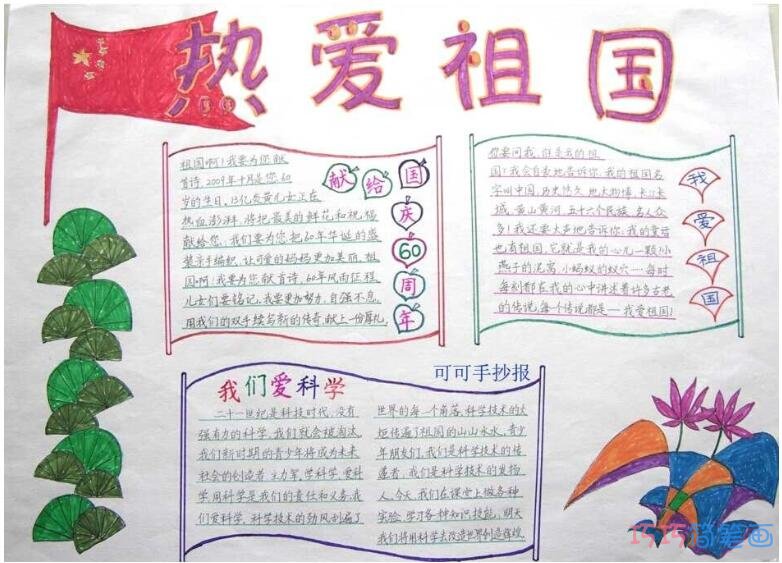 热爱祖国
祖国啊!我要为您献
首诗,2009年十月是您60
岁的生日,13亿炎黄儿女正在
热血澎湃,将把最美的鲜花和祝福
献给您,我们要为您把60年华诞的盛
装亲手编织,让可爱的妈妈更加美丽.祖
国啊!我要为您献首诗,60年风雨征程,
儿女们要铭记,我要更加努力,自强不息,
用我们的双手续写新的传奇,献上一份厚礼,
献给国
庆
60
周
年
你要问我,谁是我的祖
国?我会自豪地告诉你,我的祖国名
字叫中国,历史悠久,地大物博,长江长
城,黄山黄河,五十六个民族,名人众
多!我还要大声地告诉你:我的童话
也有祖国,它就是我的心儿一颗!小
燕子的泥窝,小蚂蚁的蚁穴……每时
每刻都在我的心中讲述着许多古老
的传说,每个传说都是……我爱祖国!
我
爱
祖
国
我们爱科学
可可手抄报
二十一世纪是科技时代,没有
强有力的科学,我们就会被淘汰,
我们新时期的青少年将成为未来
社会的创造者、主力军,学科学、爱科
学、用科学是我们的责任和义务,我
们爱科学,科学技术的劲风刮遍了
世界的每一个角落,科学技术的火
炬传遍了祖国的山山水水,青少
年朋友们,我们是科学技术的传
递者,我们是科学技术的发扬
人,今天,我们在课堂上做各种
实验,学习各种知识技能,明天
我们将用科学去改造世界创造辉煌.
巧巧简笔画